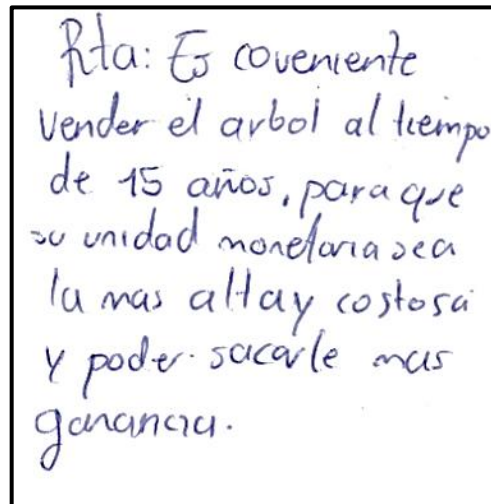 Rta: Es coveniente
vender el arbol al tiempo
de 15 años, para que
su unidad monetaria sea
la mas alta y costosa
y poder sacarle mas
ganancia.